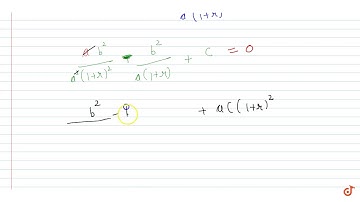 a (1+r)
a b² / a² (1+r)² - b² / a (1+r) + c = 0
b² - 9 + a c (1+r)²